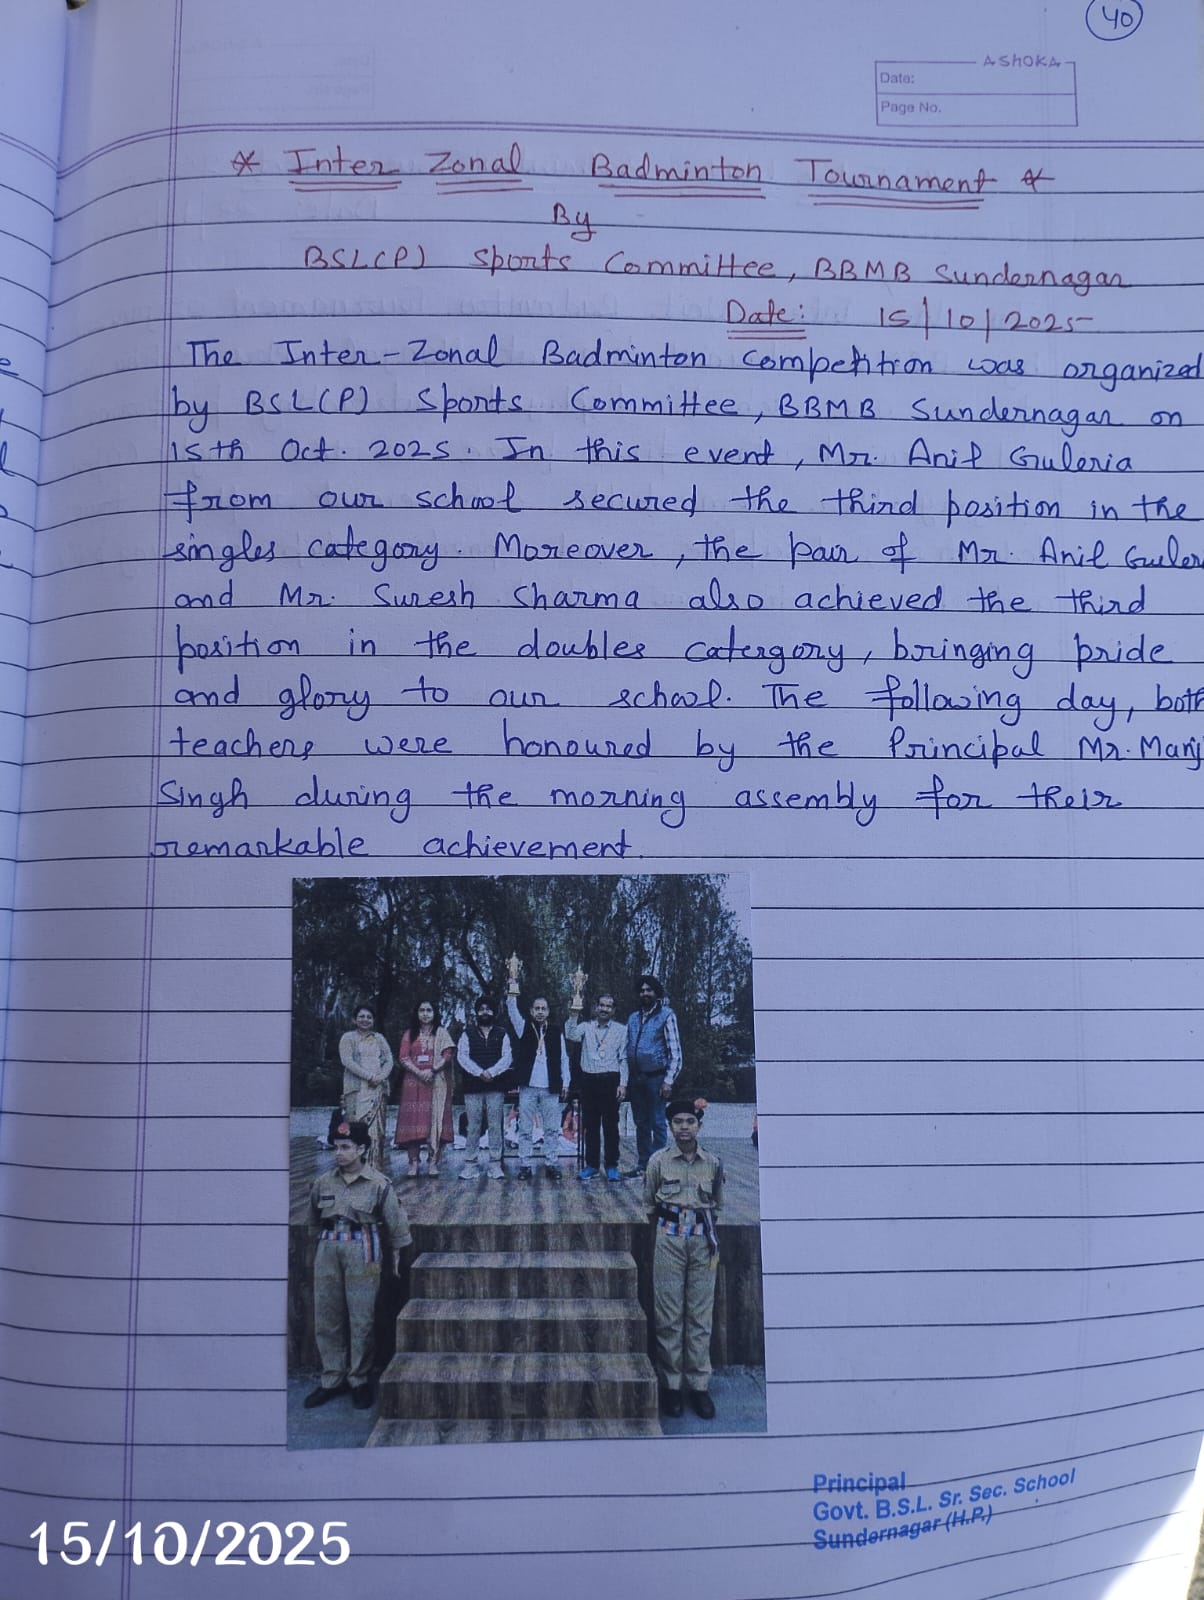 40
ASHOKA
Date:
Page No.
* Inter Zonal Badminton Tournament *
By
BSL(P) Sports Committee, BBMB Sundernagar
Date: 15/10/2025
The Inter-Zonal Badminton Competition was organized
by BSL(P) Sports Committee, BBMB Sundernagar on
15th Oct. 2025. In this event, Mr. Anil Guleria
from our school secured the third position in the
singles category. Moreover, the pair of Mr. Anil Guler
and Mr. Suresh Sharma also achieved the third
position in the doubles catergory, bringing pride
and glory to our school. The following day, both
teachers were honoured by the Principal Mr. Manj
Singh during the morning assembly for their
remarkable achievement.
Principal
Govt. B.S.L. Sr. Sec. School
Sundernagar (H.P.)
15/10/2025